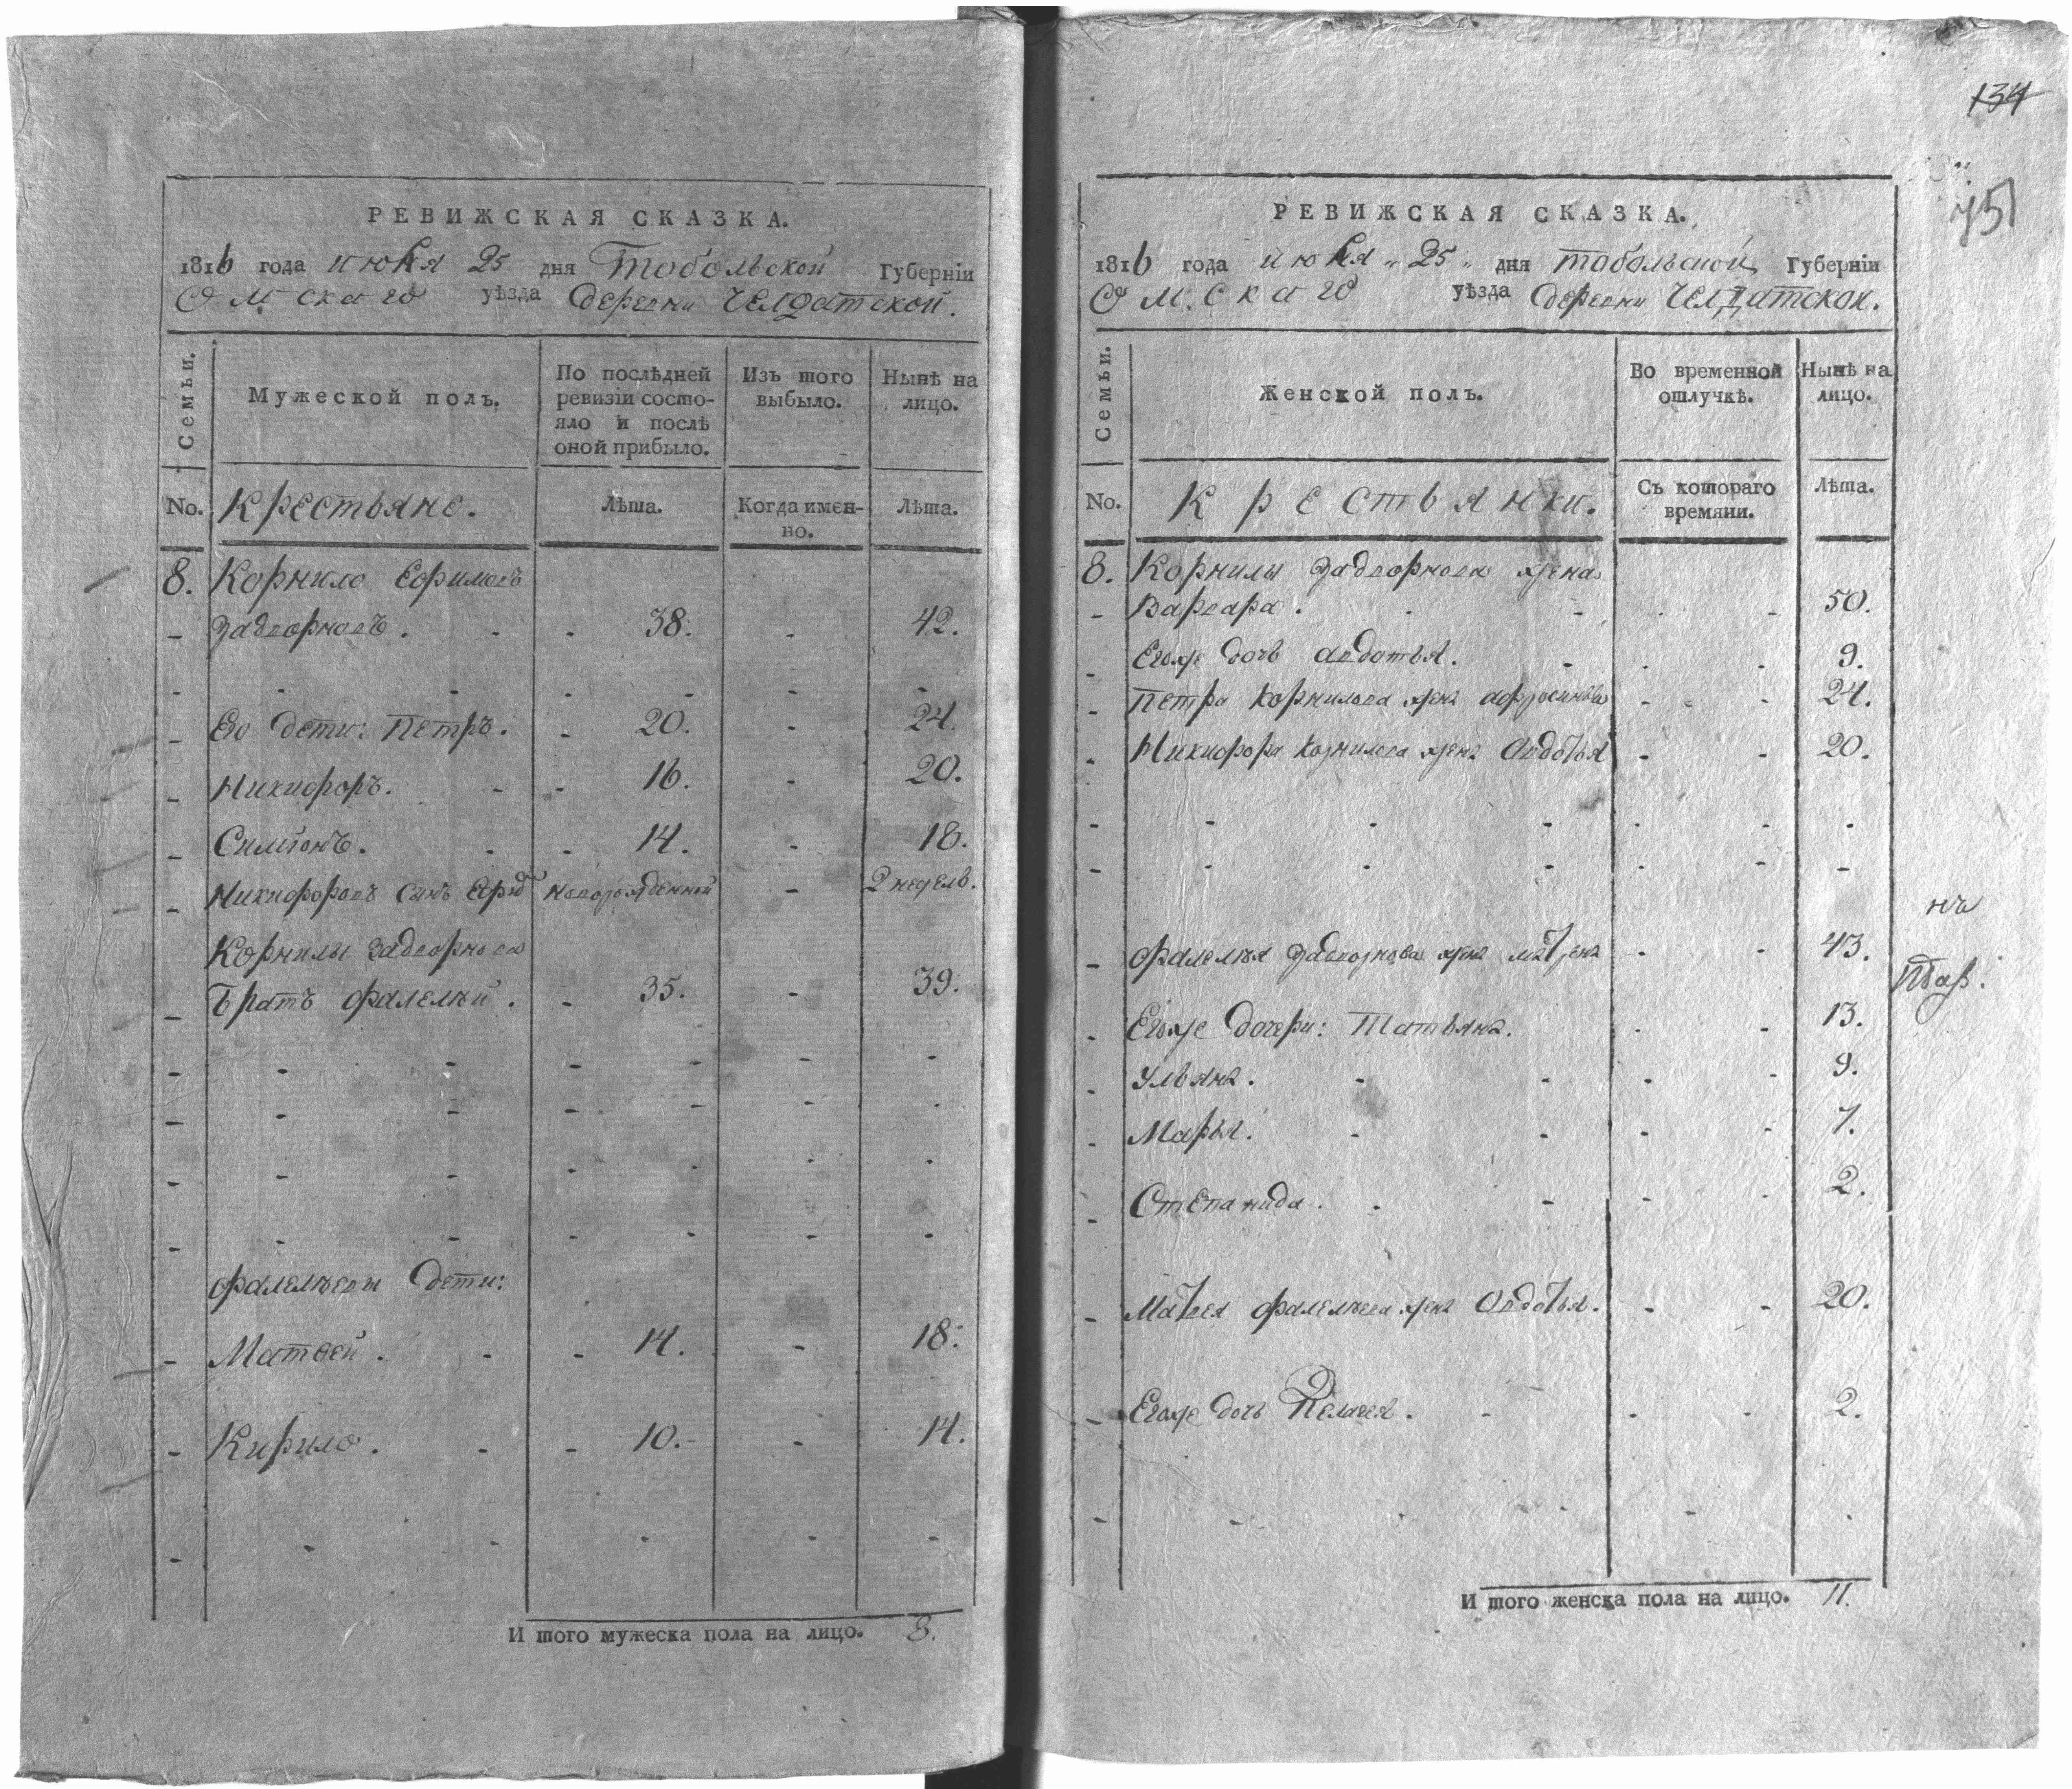 РЕВИЖСКАЯ СКАЗКА.
1816 года июня 25 дня Тобольской Губерніи
Омскаго уѣзда деревни Челдатской.
Семьи.
Мужеской полъ.
По послѣдней ревизіи состояло и послѣ оной прибыло.
Изъ того выбыло.
Нынѣ на лицо.
No. Крестьяне.
Лѣта.
Когда именно.
Лѣта.
8. Корнило Ефимовъ
Задворновъ. 38. 42.
Его дети: Петръ. 20. 24.
Никифоръ. 16. 20.
Симіонъ. 14. 18.
Никифоровъ сынъ новорожденной 2 недель.
Корнилы Задворнова
братъ Фалелѣй. 35. 39.
Фалелѣевы дети:
Матѳей. 14. 18.
Кирило. 10. 14.
И того мужеска пола на лицо. 8.
134
151
РЕВИЖСКАЯ СКАЗКА.
1816 года июня 25 дня Тобольской Губерніи
Омскаго уѣзда деревни Челдатской.
Семьи.
Женской полъ.
Во временной отлучкѣ.
Нынѣ на лицо.
No. Крестьянки.
Съ котораго времяни.
Лѣта.
8. Корнилы Задворнова жена
Варвара. 50.
Егоже дочь Авдотья. 9.
Петра Корнилова жена Афросинья 24.
Никифора Корнилова жена Овдотья 20.
нъ
Фалелѣя Задворнова жена Матрена 43.
Егоже дочери: Татьяна. 13.
Ульяна. 9.
Марья. 7.
Степанида. 2.
Матвея Фалелѣева жена Овдотья. 20.
Егоже дочь Пелагея. 2.
И того женска пола на лицо. 11.